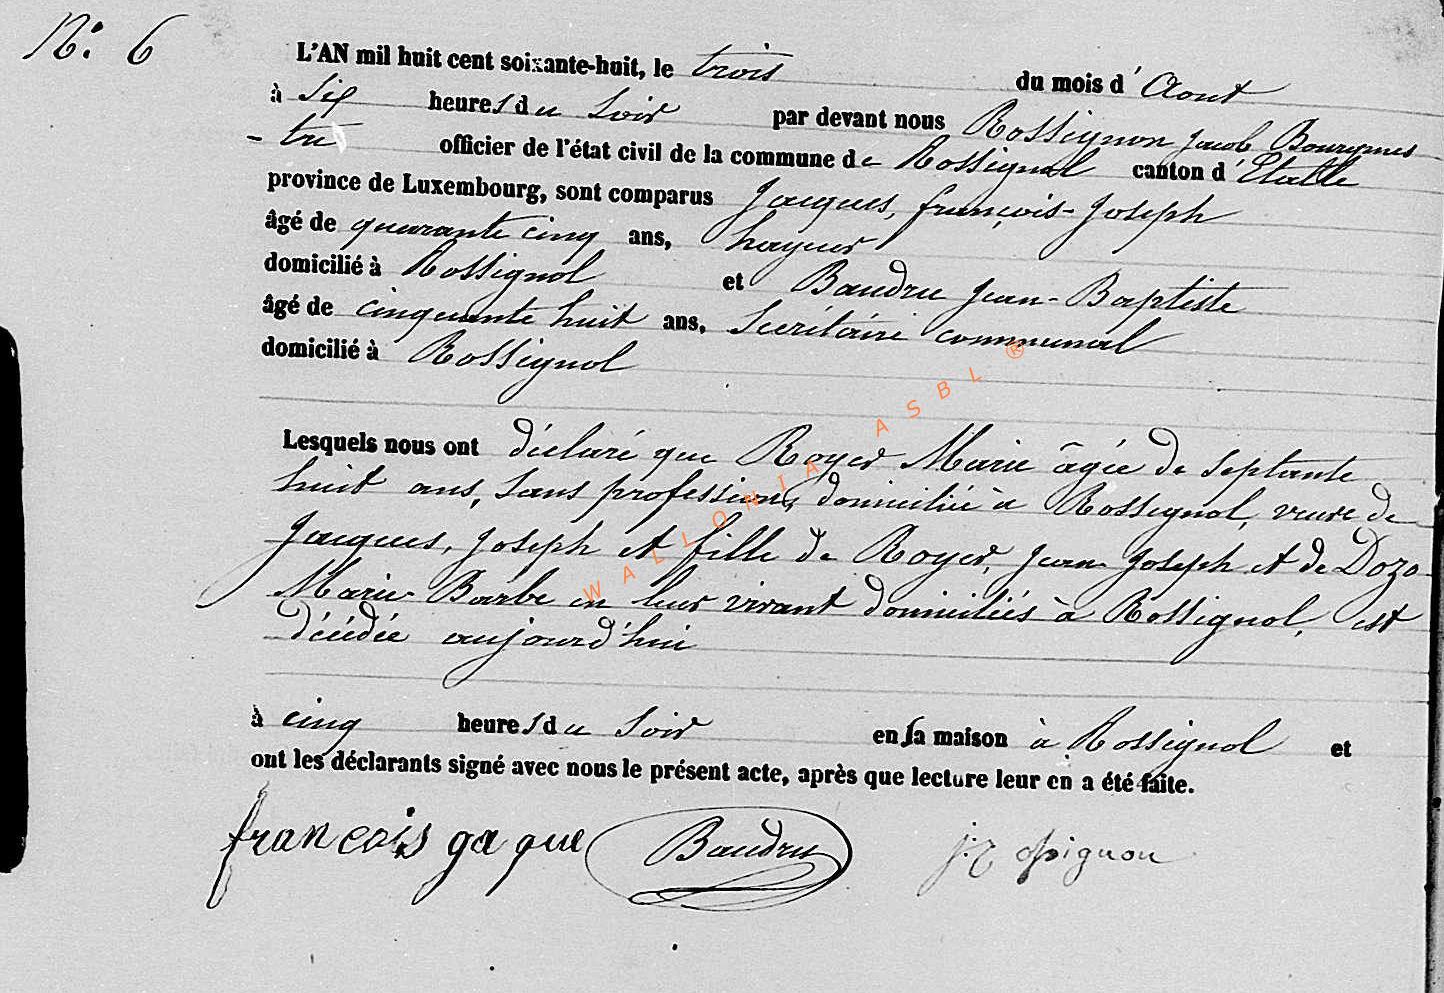 N.° 6
L'AN mil huit cent soixante-huit, le trois du mois d'Aout
à six heures du soir par devant nous Rossignon Jacob Bourgmes
-tre officier de l'état civil de la commune de Rossignol canton d'Etalle
province de Luxembourg, sont comparus Jacques, françois-Joseph
âgé de quarante cinq ans,
domicilié à Rossignol et Baudru Jean-Baptiste
âgé de cinquante huit ans, Secrétaire communal
domicilié à Rossignol
Lesquels nous ont déclaré que Royer Marie âgée de septante
huit ans, sans profession, domiciliée à Rossignol, veuve de
Jacques, Joseph et fille de Royer, Jean Joseph et de Dozo
Marie-Barbe en leur vivant domiciliés à Rossignol, est
décédée aujourd'hui
à cinq heures du soir en sa maison à Rossignol et
ont les déclarants signé avec nous le présent acte, après que lecture leur en a été faite.
francois gaque Baudru
WALLONIA ASBL ®